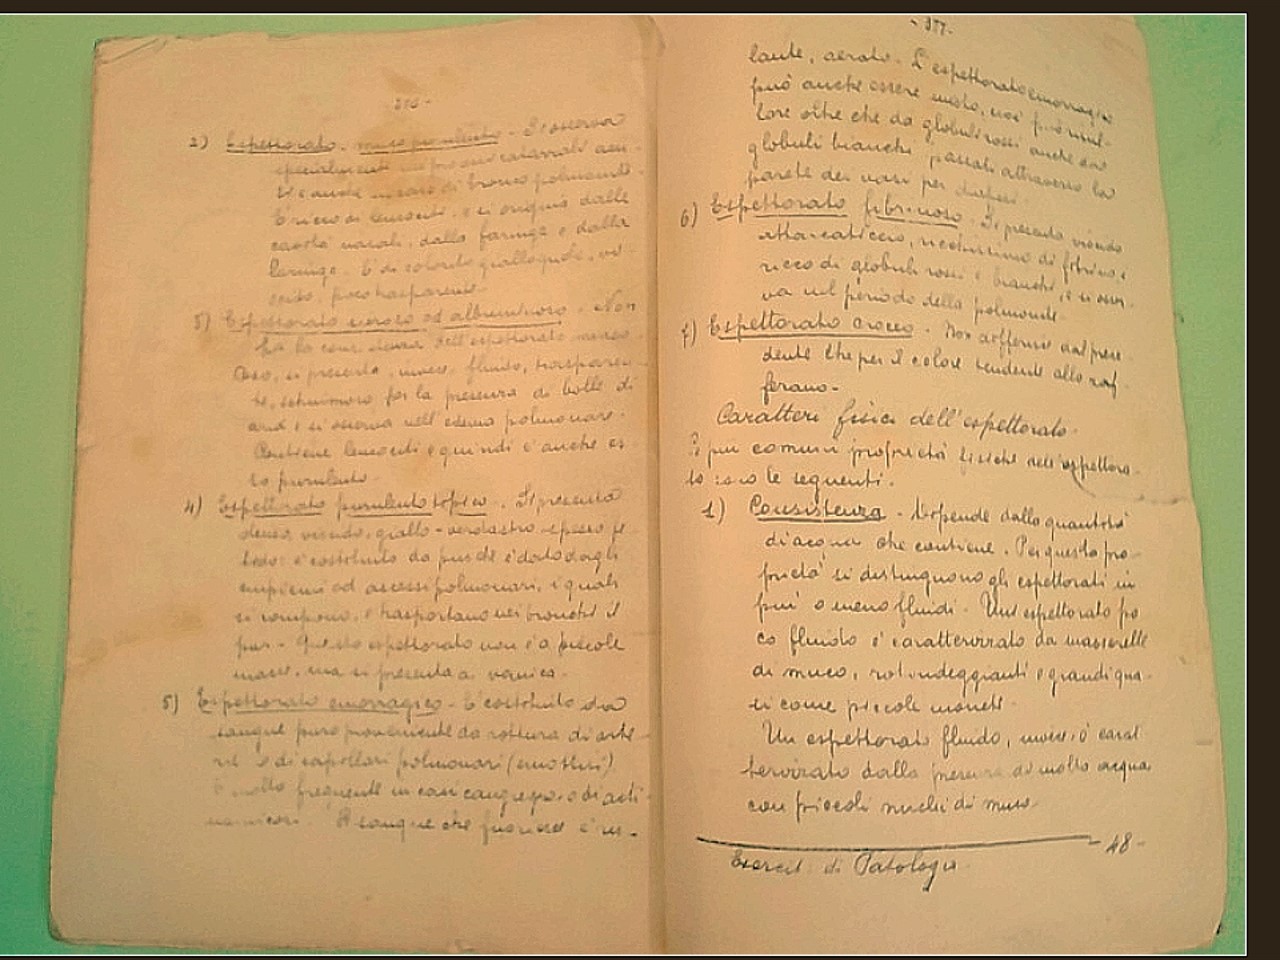 2) Espettorato muco purulento - Si osserva
specialmente nei processi catarrali acu-
ti e anche in caso di bronco polmonite.
È ricco di leucociti, e si origina dalle
cavità nasali, dalla faringe e dalla
laringe. È di colorito giallognolo, vi-
scido, poco trasparente.
3) Espettorato sieroso od albuminoso - Non
ha la consistenza dell'espettorato muco-
so, si presenta, invece, fluido, trasparen-
te, schiumoso per la presenza di bolle di
aria e si osserva nell'edema polmonare.
Contiene leucociti e quindi è anche es-
so purulento.
4) Espettorato purulento tipico. Si presenta
denso, viscido, giallo-verdastro, spesso fe-
tido: è costituito da pus ed è dato dagli
empiemi od ascessi polmonari, i quali
si rompono, e trasportano nei bronchi il
pus - Questo espettorato non è a piccole
masse, ma si presenta a vomica.
5) Espettorato emorragico - È costituito da
sangue puro proveniente da rottura di arte-
rie o di capillari polmonari (emottisi)
È molto frequente in casi
Il sangue che fuoriesce è ru-
- 377 -
lante, aerato. L'espettorato emorragico
può anche essere misto, non risul-
tare oltre che da globuli rossi anche da
globuli bianchi passati attraverso la
parete dei vasi per diapedesi.
6) Espettorato fibrinoso. Si presenta viscido
attaccaticcio, ricchissimo di fibrina, e
ricco di globuli rossi e bianchi, e si osser-
va nel periodo della polmonite.
7) Espettorato croceo - Non differisce dal prece-
dente che per il colore tendente allo zaf-
ferano -
Caratteri fisici dell'espettorato -
Le più comuni proprietà fisiche dell'espettora-
to sono le seguenti.
1) Consistenza - Dipende dalla quantità
di acqua che contiene. Per questa pro-
prietà si distinguono gli espettorati in
più o meno fluidi. Un espettorato po
co fluido è caratterizzato da masserelle
di muco, rotondeggianti e grandi qua-
si come piccole monete.
Un espettorato fluido, invece, è carat
terizzato dalla presenza di molta acqua
con piccoli nuclei di muco.
- 48 -
Esercit. di Patologia